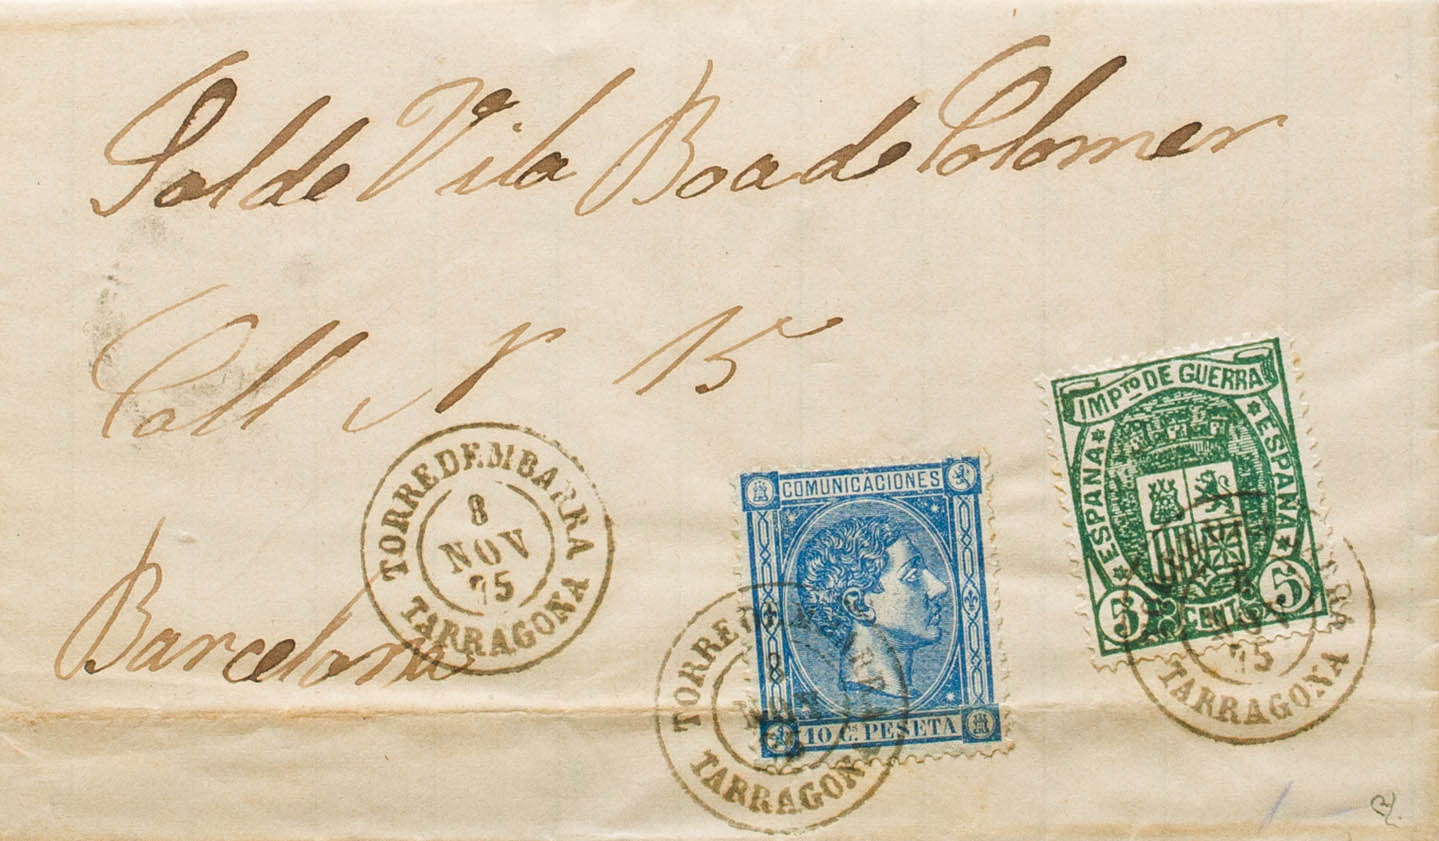 Sal de Vila Boada Colomer
Call Nº 15
Barcelona
TORREDEMBARRA
8
NOV
75
TARRAGONA
COMUNICACIONES
10 C. PESETA
TORREDEMBARRA
8
NOV
TARRAGONA
IMPTO DE GUERRA
ESPAÑA
ESPAÑA
5 CENTS 5
NOV
75
TARRAGONA